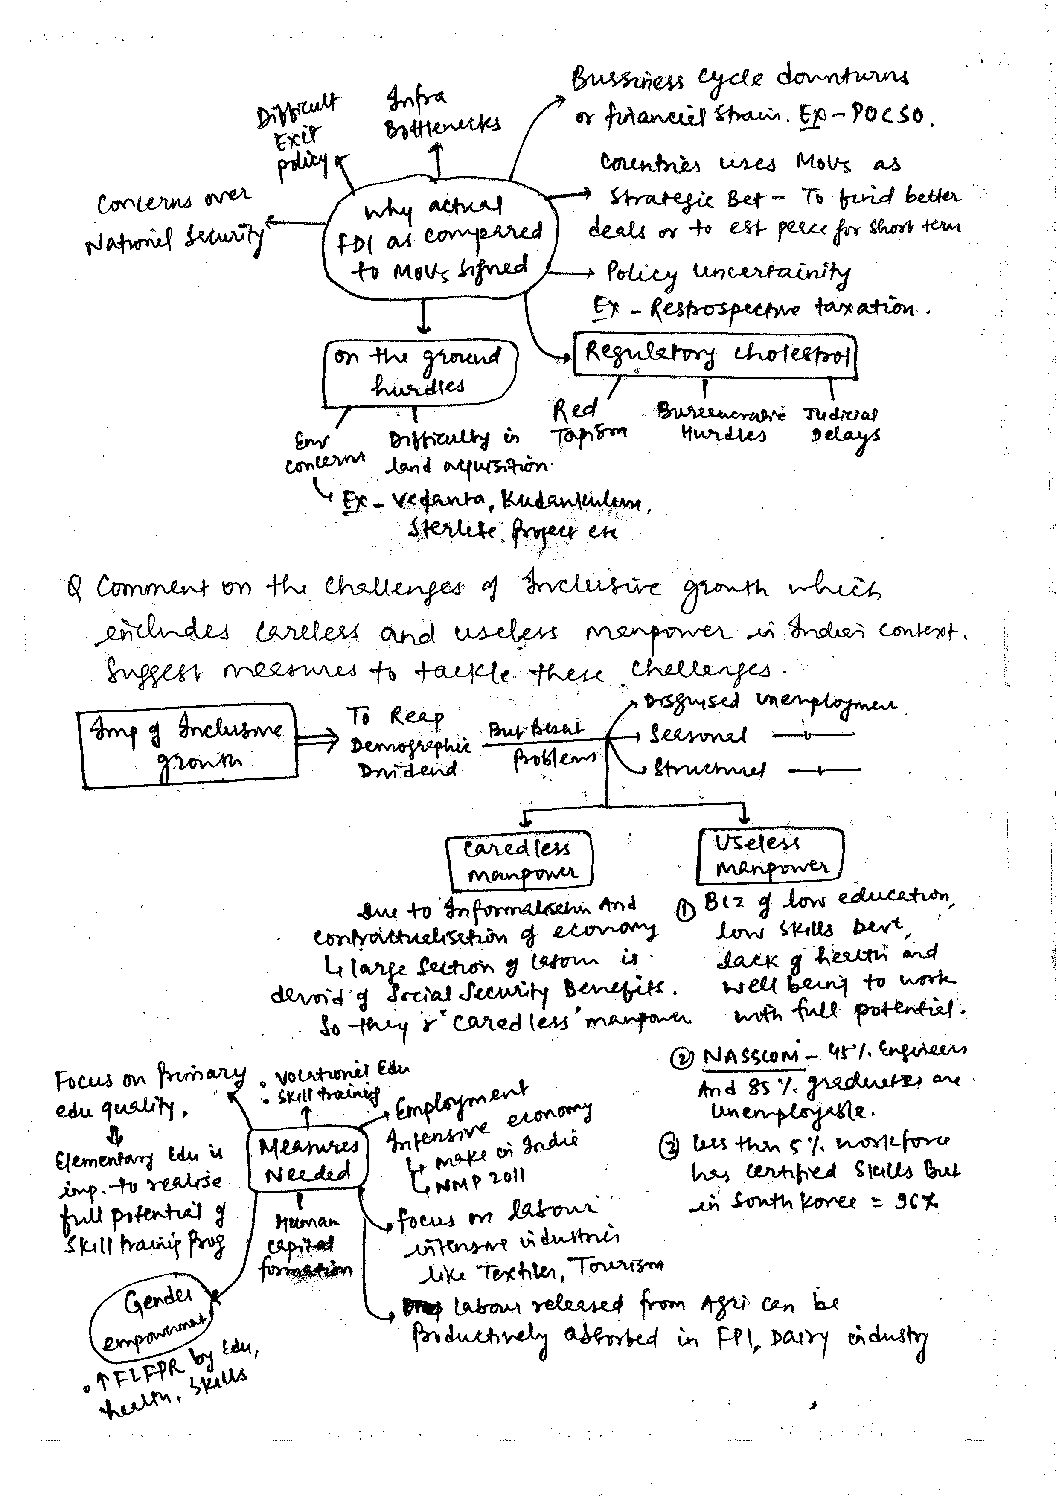 Difficult
Exit
policy
Infra
Bottlenecks
Bussiness cycle downturns
or financial strain. Ex - POCSO.
Concerns over
National Security
Why actual
FDI as compared
to MOUs signed
Countries uses MOUs as
Strategic Bet - To find better
deals or to est peace for short term
Policy Uncertainity
Ex - Restrospective taxation.
on the ground
hurdles
Regulatory cholestrol
Red
Tapism
Bureaucratic
Hurdles
Judicial
Delays
Env
concerns
Difficulty in
land acquisition.
Ex - Vedanta, Kudankulam,
Sterlite Project etc
Q Comment on the challenges of Inclusive growth which
includes careless and useless manpower in Indian context.
Suggest measures to tackle these challenges.
Imp of Inclusive
growth
To Reap
Demographic
Dividend
But Beset
Problems
Disguised unemployment
Seasonal
Structural
Caredless
manpower
Useless
manpower
Due to Informalisatin And
Contractualisation of economy
↳ large section of labour is
devoid of Social Security Benefits.
So they r "caredless" manpower
① Bcz of low education,
low skills devt,
lack of health and
well being to work
with full potential.
② NASSCOM - 45% Engineers
And 85% graduates are
Unemployable.
③ less than 5% workforce
has certified skills But
in South Korea = 96%
Measures
Needed
Focus on Primary
edu quality.
⇓
Elementary Edu is
imp. to realise
full potential of
Skill training prog
• Vocational Edu
• Skill training
Employment
Intensive economy
↳ make in India
↳ NMP 2011
Human
capital
formation
Focus on labour
intensive industries
like Textiles, Tourism
Labour released from Agri can be
Productively absorbed in FPI, Dairy industry
Gender
empowerment
• ↑ FLFPR by Edu,
health, Skills